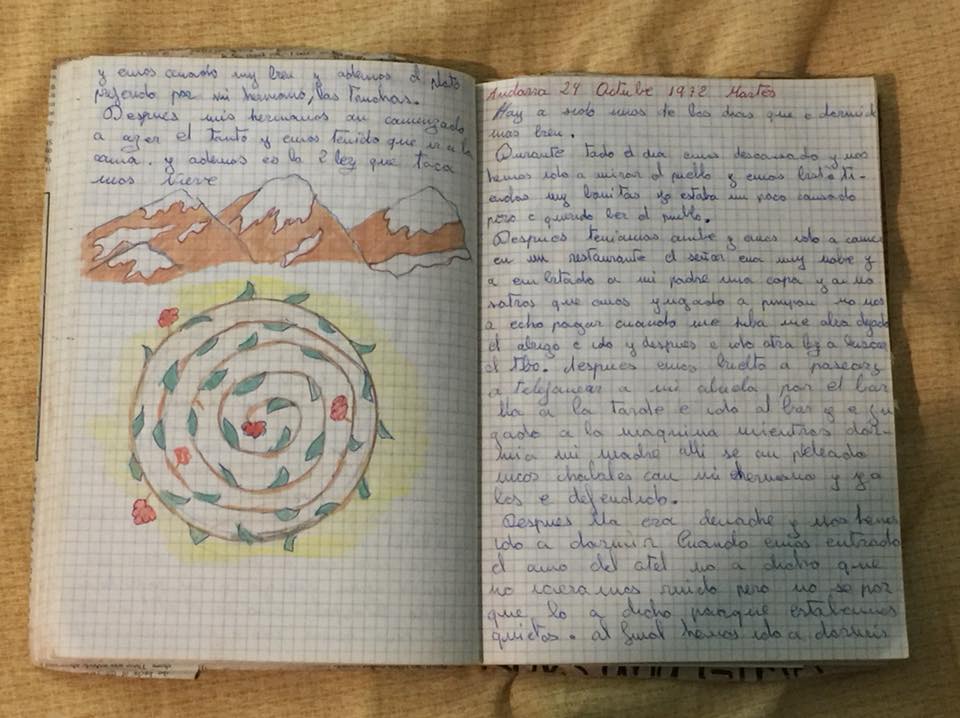 y emos cenado muy bien y ademos el plato
prejerido por mi hermano, las truchas.
Despues mis hermanos an comenzado
a azer el tonto y emos tenido que ir a la
cama. y ademas es la 2 vez que toca
nos nieve
Andorra 24 Octubre 1972 Martes
Hay a sido unos de los dias que e dormido
mas bien.
Durante todo el dia emos descansado y nos
hemos ido a mirar el pueblo y emos bisto ti-
endas muy bonitas yo estaba un poco cansado
pero e querido ber el pueblo.
Despues teniamos ambe y emos ido a comer
en un restaurante el señor era muy nobe y
a embitado a mi padre una copa y a no
sotros que emos yugado a pimpon no nos
a echo pagar cuando me iba me abia dejado
el abrigo e ido y despues e ido otra bez a buscar
el libo. despues emos buelto a pasear y
a telejonear a mi abuela por el bar
lla a la tarde e ido al bar y e ju
gado a la maquina mientras dor-
mia mi madre alli se an peleado
unos chabales con mi ehermano y yo
les e defendido.
Despues lla era denoche y nos hemos
ido a dormir Cuando emos entrado
el amo del otel no a dicho que
no icieramos ruido pero no se por
que lo a dicho porque estabamos
quietos. al final hemos ido a dormir